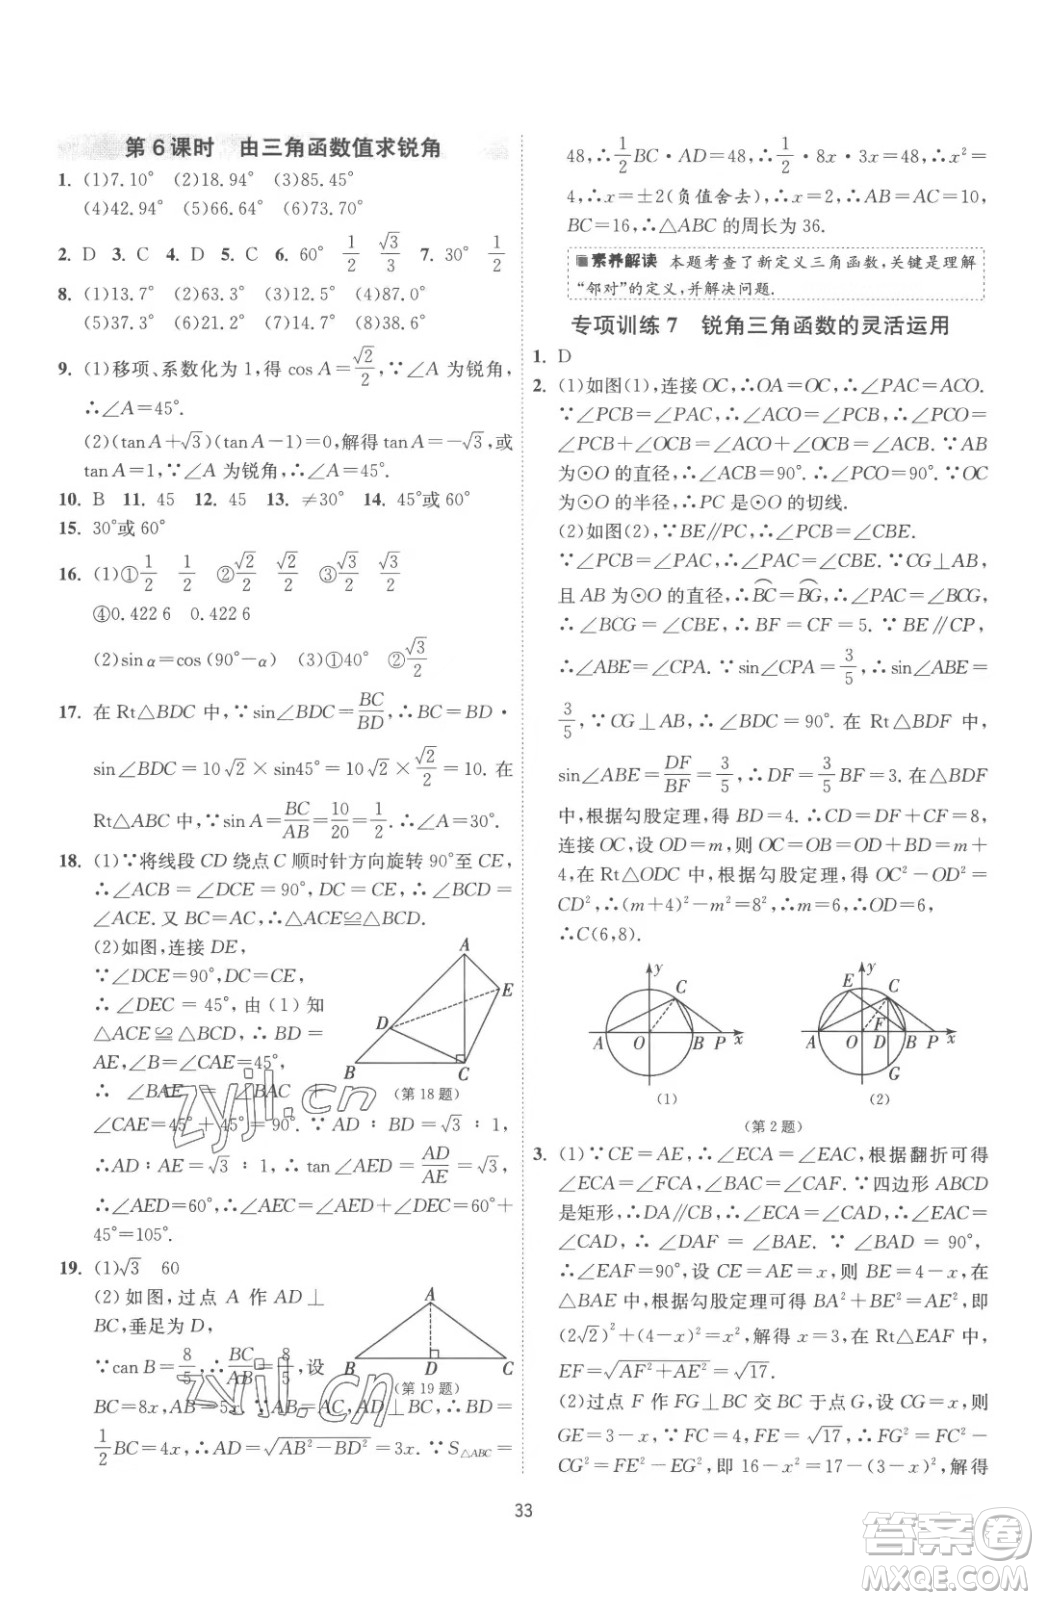 第6课时 由三角函数值求锐角
1. (1)7.10° (2)18.94° (3)85.45°
(4)42.94° (5)66.64° (6)73.70°
2. D 3. C 4. D 5. C 6. 60° 1/2 √3/3 7. 30° 1/2
8. (1)13.7° (2)63.3° (3)12.4° (4)87.0°
(5)37.3° (6)21.2° (7)14.7° (8)79.5°
9. (1)移项、系数化为1,得 cos A=√2/2,∵∠A 为锐角,
∴∠A=45°.
(2)(tan A+√3)(tan A-1)=0,解得 tan A=-√3,或
tan A=1,∵∠A 为锐角,∴∠A=45°.
10. B 11. 45 12. 45 13. ≠30° 14. 45°或 60°
15. 30°或 60°
16. (1)①1/2 1/2 ②√2/2 √2/2 ③√3/2 √3/2
④0.422 6 0.422 6
(2)sin α=cos (90°-α) (3)①40° ②√3/2
17. 在 Rt△BDC 中,∵sin∠BDC=BC/BD,∴BC=BD·
sin∠BDC=10√2×sin45°=10√2×√2/2=10. 在
Rt△ABC 中,∵sin A=BC/AB=10/20=1/2.∴∠A=30°.
18. (1)∵将线段 CD 绕点 C 顺时针方向旋转 90°至 CE,
∴∠ACB=∠DCE=90°, DC=CE, ∴∠BCD=
∠ACE. 又 BC=AC,∴△ACE≌△BCD.
(2)如图,连接 DE,
∵∠DCE=90°,DC=CE,
∴∠DEC=45°,由(1)知
△ACE≌△BCD,∴BD=
AE,∠B=∠CAE=45°,
∴∠BAE=∠BAC+
∠CAE=45°+45°=90°. ∵AD∶BD=√3∶1,
∴AD∶AE=√3∶1,∴tan∠AED=AD/AE=√3,
∴∠AED=60°,∴∠AEC=∠AED+∠DEC=60°+
45°=105°.
A
E
D
B
C
(第 18 题)
19. (1)√3 60
(2)如图,过点 A 作 AD⊥
BC,垂足为 D,
∵can B=8/5,∴BC/AB=8/5,设
BC=8x,AB=5x,∵AB=AC,AD⊥BC,∴BD=
1/2BC=4x,∴AD=√(AB²-BD²)=3x. ∵S△ABC=
A
B
D
C
(第 19 题)
48,∴1/2BC·AD=48,∴1/2·8x·3x=48,∴x²=
4,∴x=±2(负值舍去),∴x=2,∴AB=AC=10,
BC=16,∴△ABC 的周长为 36.
素养解读 本题考查了新定义三角函数,关键是理解
“邻对”的定义,并解决问题.
专项训练7 锐角三角函数的灵活运用
1. D
2. (1)如图(1),连接 OC,∴OA=OC,∴∠PAC=ACO.
∵∠PCB=∠PAC,∴∠ACO=∠PCB,∴∠PCO=
∠PCB+∠OCB=∠ACO+∠OCB=∠ACB. ∵AB
为⊙O 的直径,∴∠ACB=90°. ∴∠PCO=90°. ∵OC
为⊙O 的半径,∴PC 是⊙O 的切线.
(2)如图(2),∵BE∥PC,∴∠PCB=∠CBE.
∵∠PCB=∠PAC,∴∠PAC=∠CBE. ∵CG⊥AB,
且 AB 为⊙O 的直径,∴BC=BG,∴∠PAC=∠BCG,
∴∠BCG=∠CBE,∴BF=CF=5. ∵BE∥CP,
∴∠ABE=∠CPA. ∵sin∠CPA=3/5,∴sin∠ABE=
3/5,∵CG⊥AB,∴∠BDC=90°. 在 Rt△BDF 中,
sin∠ABE=DF/BF=3/5,∴DF=3/5BF=3. 在△BDF
中,根据勾股定理,得 BD=4. ∴CD=CF+DF=8,
连接 OC,设 OD=m,则 OC=OB=OD+BD=m+
4,在 Rt△ODC 中,根据勾股定理,得 OC²-OD²=
CD²,∴(m+4)²-m²=8²,∴m=6,∴OD=6,
∴C(6,8).
y
C
A
O
B
P
x
(1)
y
E
C
F
A
O
D
B
P
x
G
(2)
(第 2 题)
3. (1)∵CE=AE,∴∠ECA=∠EAC,根据翻折可得
∠ECA=∠FCA,∠BAC=∠CAF. ∵四边形 ABCD
是矩形,∴DA∥CB,∴∠ECA=∠CAD,∴∠EAC=
∠CAD,∴∠DAF=∠BAE. ∵∠BAD=90°,
∴∠EAF=90°,设 CE=AE=x,则 BE=4-x,在
△BAE 中,根据勾股定理可得 BA²+BE²=AE²,即
(2√2)²+(4-x)²=x²,解得 x=3,在 Rt△EAF 中,
EF=√(AF²+AE²)=√17.
(2)过点 F 作 FG⊥BC 交 BC 于点 G,设 CG=x,则
GE=3-x,∵FC=4,FE=√17,∴FG²=FC²-
CG²=FE²-EG²,即 16-x²=17-(3-x)²,解得
33
zyjl.cn
zyjl.cn
答案卷